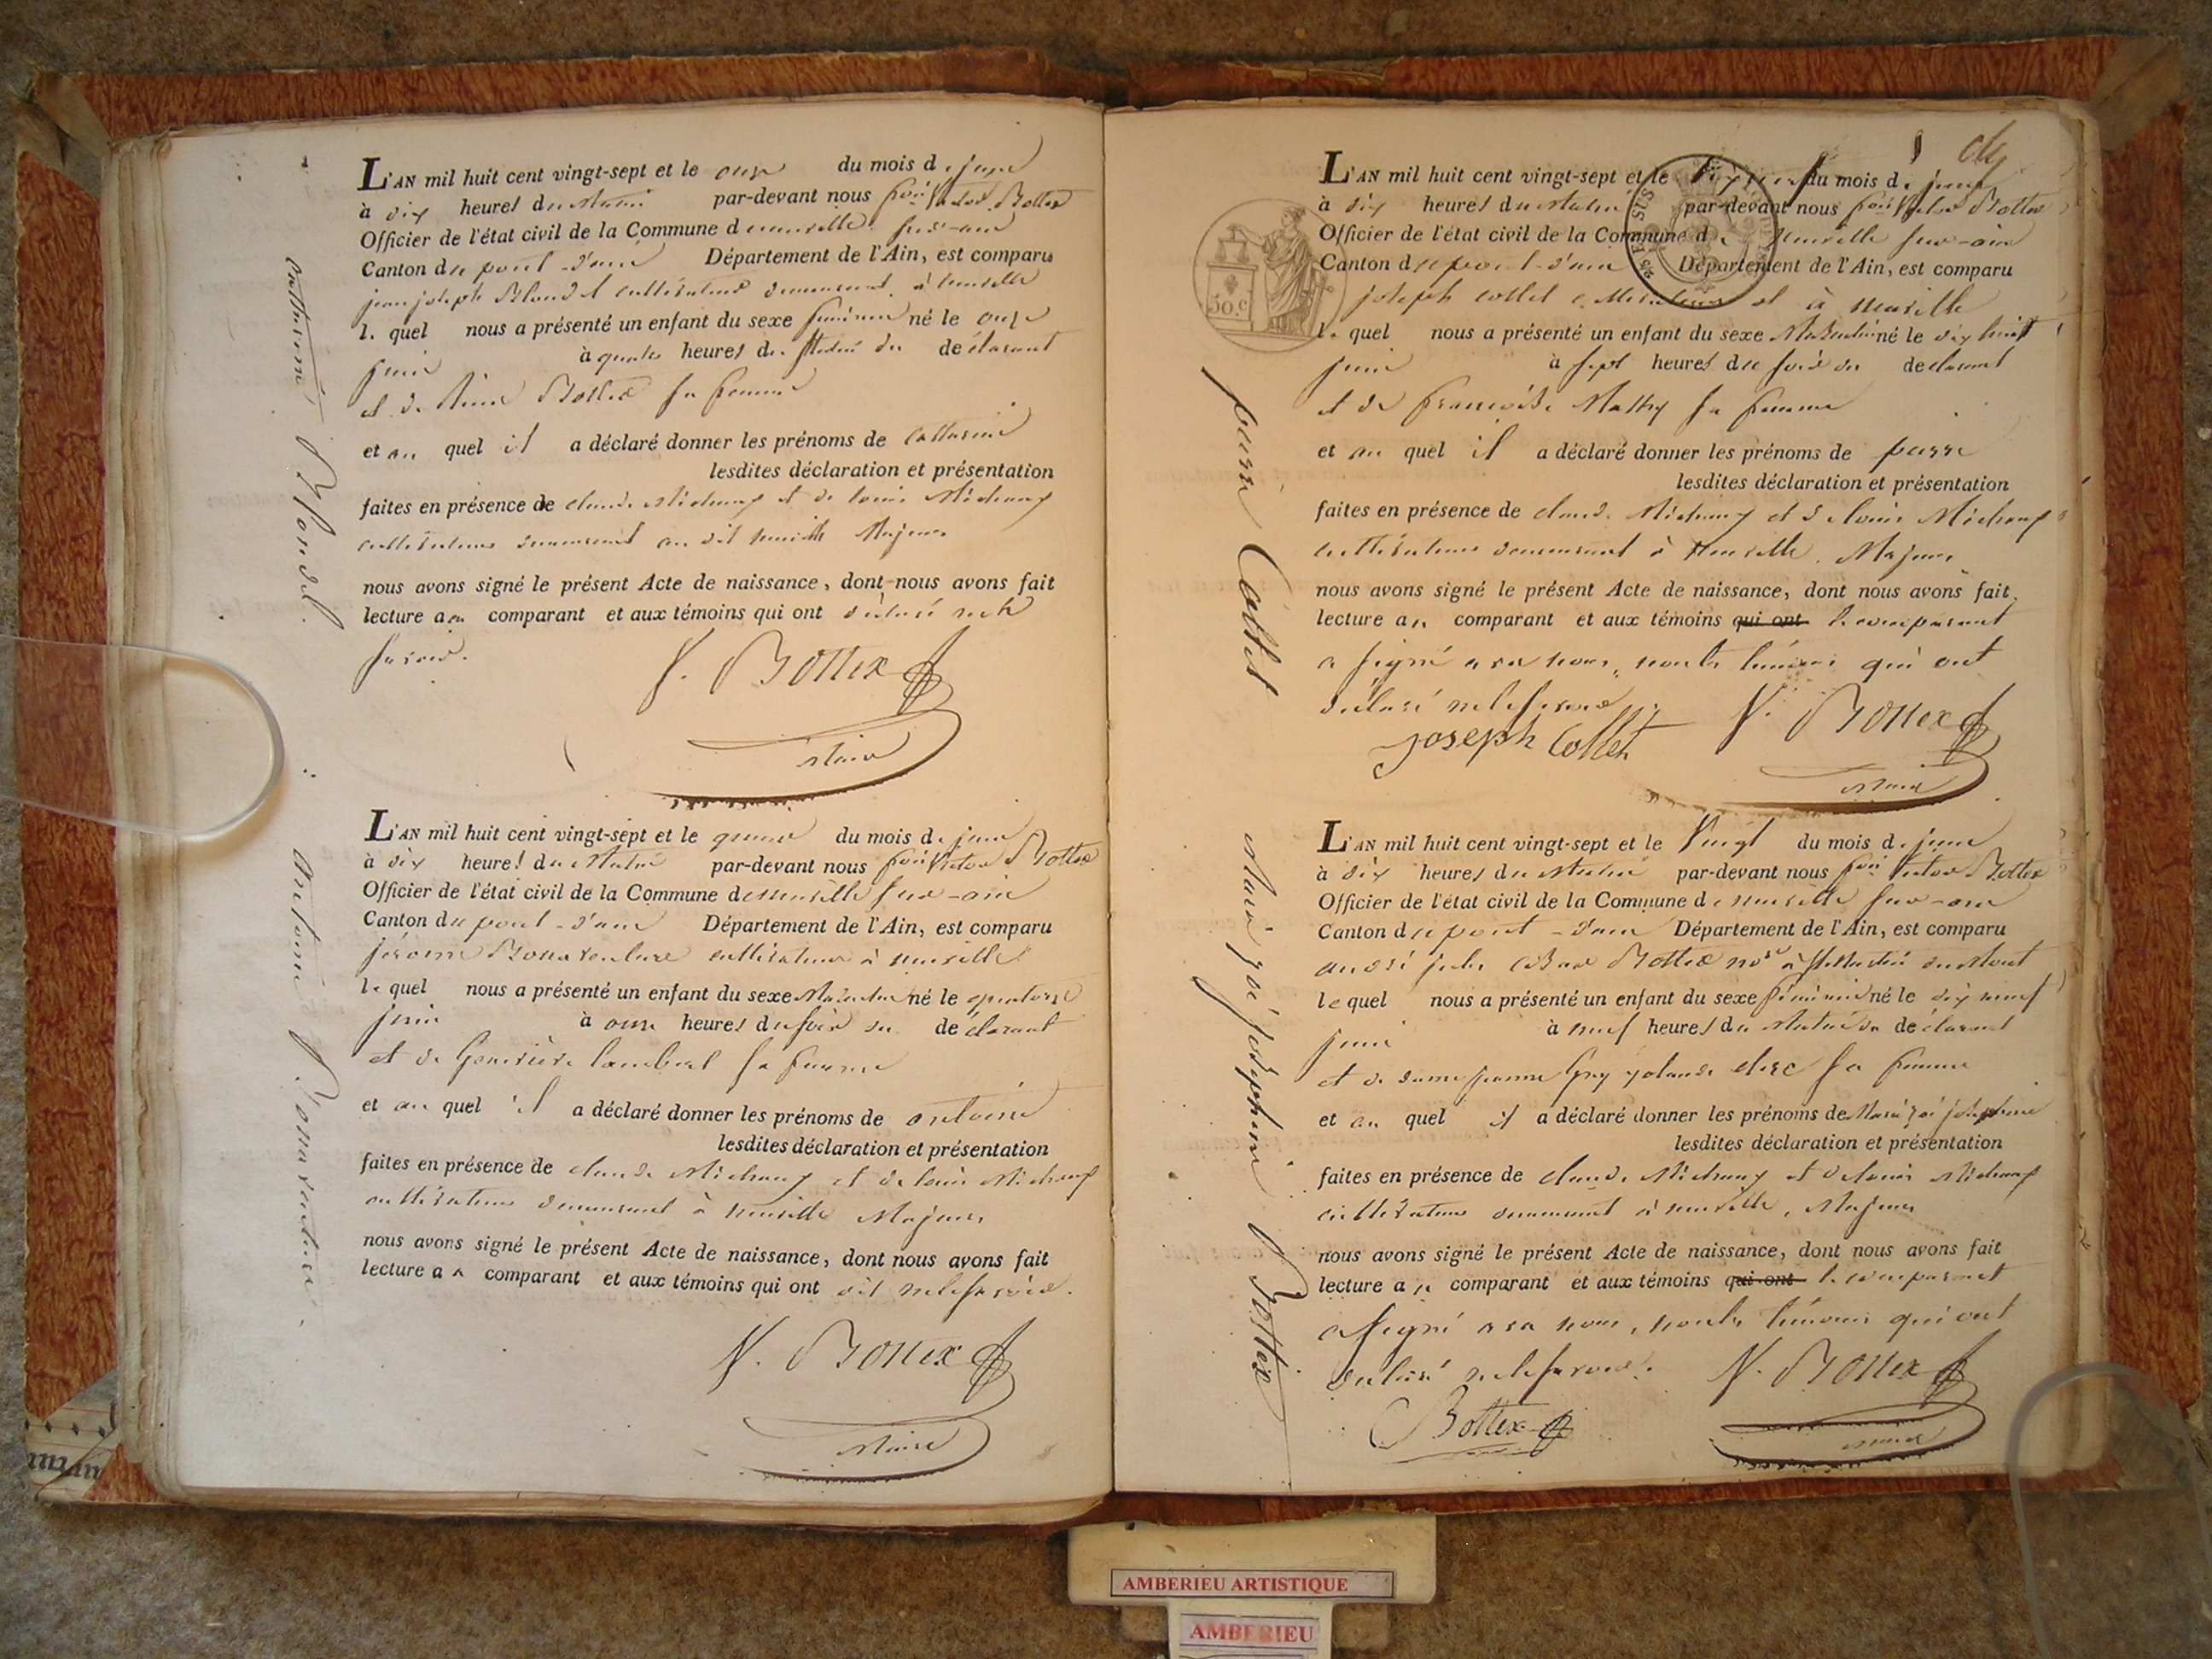 L'AN mil huit cent vingt-sept et le onze du mois de juin
à dix heures du matin par-devant nous fois Victor Bottex
Officier de l'état civil de la Commune de neuville sur-ain
Canton du pont-d'ain Département de l'Ain, est comparu
jean joseph Blondel cultivateur demeurant à neuville
le quel nous a présenté un enfant du sexe féminin né le onze
juin à quatre heures du matin du déclarant
et de Bottex sa femme
et au quel il a déclaré donner les prénoms de Catherine
lesdites déclaration et présentation
faites en présence de claude Michaux et de louis Michaux
cultivateurs demeurant au dit neuville Majeurs
nous avons signé le présent Acte de naissance, dont nous avons fait
lecture au comparant et aux témoins qui ont déclaré ne le
savoir.
V. Bottex
Maire
Catherine Blondel
L'AN mil huit cent vingt-sept et le quinze du mois de juin
à dix heures du matin par-devant nous fois Victor Bottex
Officier de l'état civil de la Commune de neuville sur-ain
Canton du pont-d'ain Département de l'Ain, est comparu
jérome Bonaventure cultivateur à neuville
le quel nous a présenté un enfant du sexe Masculin né le quatorze
juin à onze heures du soir du déclarant
et de Genevieve lambert sa femme
et au quel il a déclaré donner les prénoms de antoine
lesdites déclaration et présentation
faites en présence de claude Michaux et de louis Michaux
cultivateurs demeurant à neuville Majeurs
nous avons signé le présent Acte de naissance, dont nous avons fait
lecture au comparant et aux témoins qui ont dit ne le savoir.
V. Bottex
Maire
antoine Bonaventure
L'AN mil huit cent vingt-sept et le du mois de juin
à dix heures du matin par-devant nous fois Victor Bottex
Officier de l'état civil de la Commune de neuville sur-ain
Canton du pont-d'ain Département de l'Ain, est comparu
joseph collet cultivateur à neuville
50.c
le quel nous a présenté un enfant du sexe Masculin né le dix huit
juin à sept heures du soir du déclarant
et de françoise Mathy sa femme
et au quel il a déclaré donner les prénoms de pierre
lesdites déclaration et présentation
faites en présence de claude Michaux et de louis Michaux
cultivateurs demeurant à neuville. Majeurs
nous avons signé le présent Acte de naissance, dont nous avons fait
lecture au comparant et aux témoins qui ont le comparant
a signé avec nous, non les témoins qui ont
déclaré ne le savoir.
Joseph Collet V. Bottex
Maire
pierre Collet
L'AN mil huit cent vingt-sept et le Vingt du mois de juin
à dix heures du matin par-devant nous fois Victor Bottex
Officier de l'état civil de la Commune de neuville sur-ain
Canton du pont-d'ain Département de l'Ain, est comparu
andré jules Bottex
le quel nous a présenté un enfant du sexe féminin né le dix neuf
juin à neuf heures du matin du déclarant
et de dame jeanne yolande clerc sa femme
et au quel il a déclaré donner les prénoms de Marie zoé joséphine
lesdites déclaration et présentation
faites en présence de claude Michaux et de louis Michaux
cultivateurs demeurant à neuville, Majeurs
nous avons signé le présent Acte de naissance, dont nous avons fait
lecture au comparant et aux témoins qui ont le comparant
a signé avec nous, non les témoins qui ont
déclaré ne le savoir. V. Bottex
Bottex
Maire
Marie zoé joséphine Bottex
AMBERIEU ARTISTIQUE
AMBERIEU